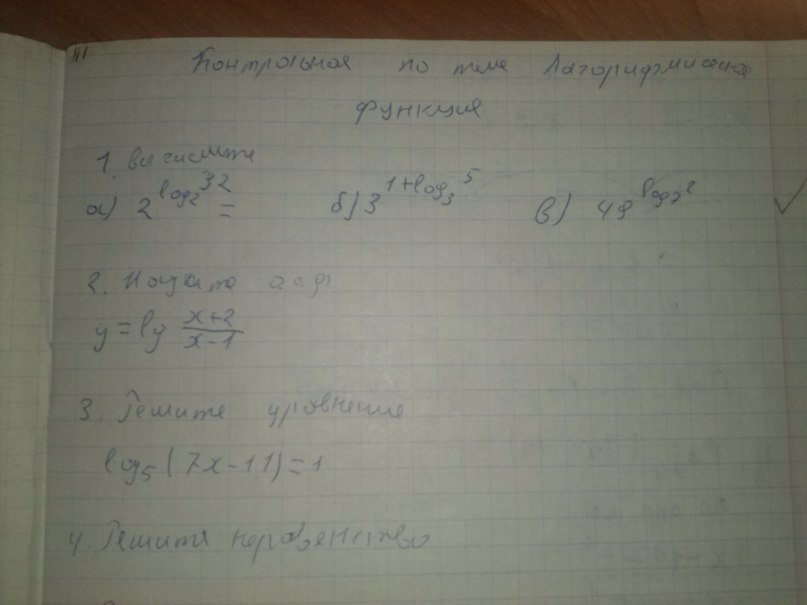 Контрольная по теме Логорифмическая
функция
1. Вычислите
а) 2^log₂32 = б) 3^1+log₃5 в) 49^log₇2
2. Найдите о.о.ф
y = lg (x+2)/(x-1)
3. Решите уравнение
log₅(7x-11)=1
4. Решите неравенство